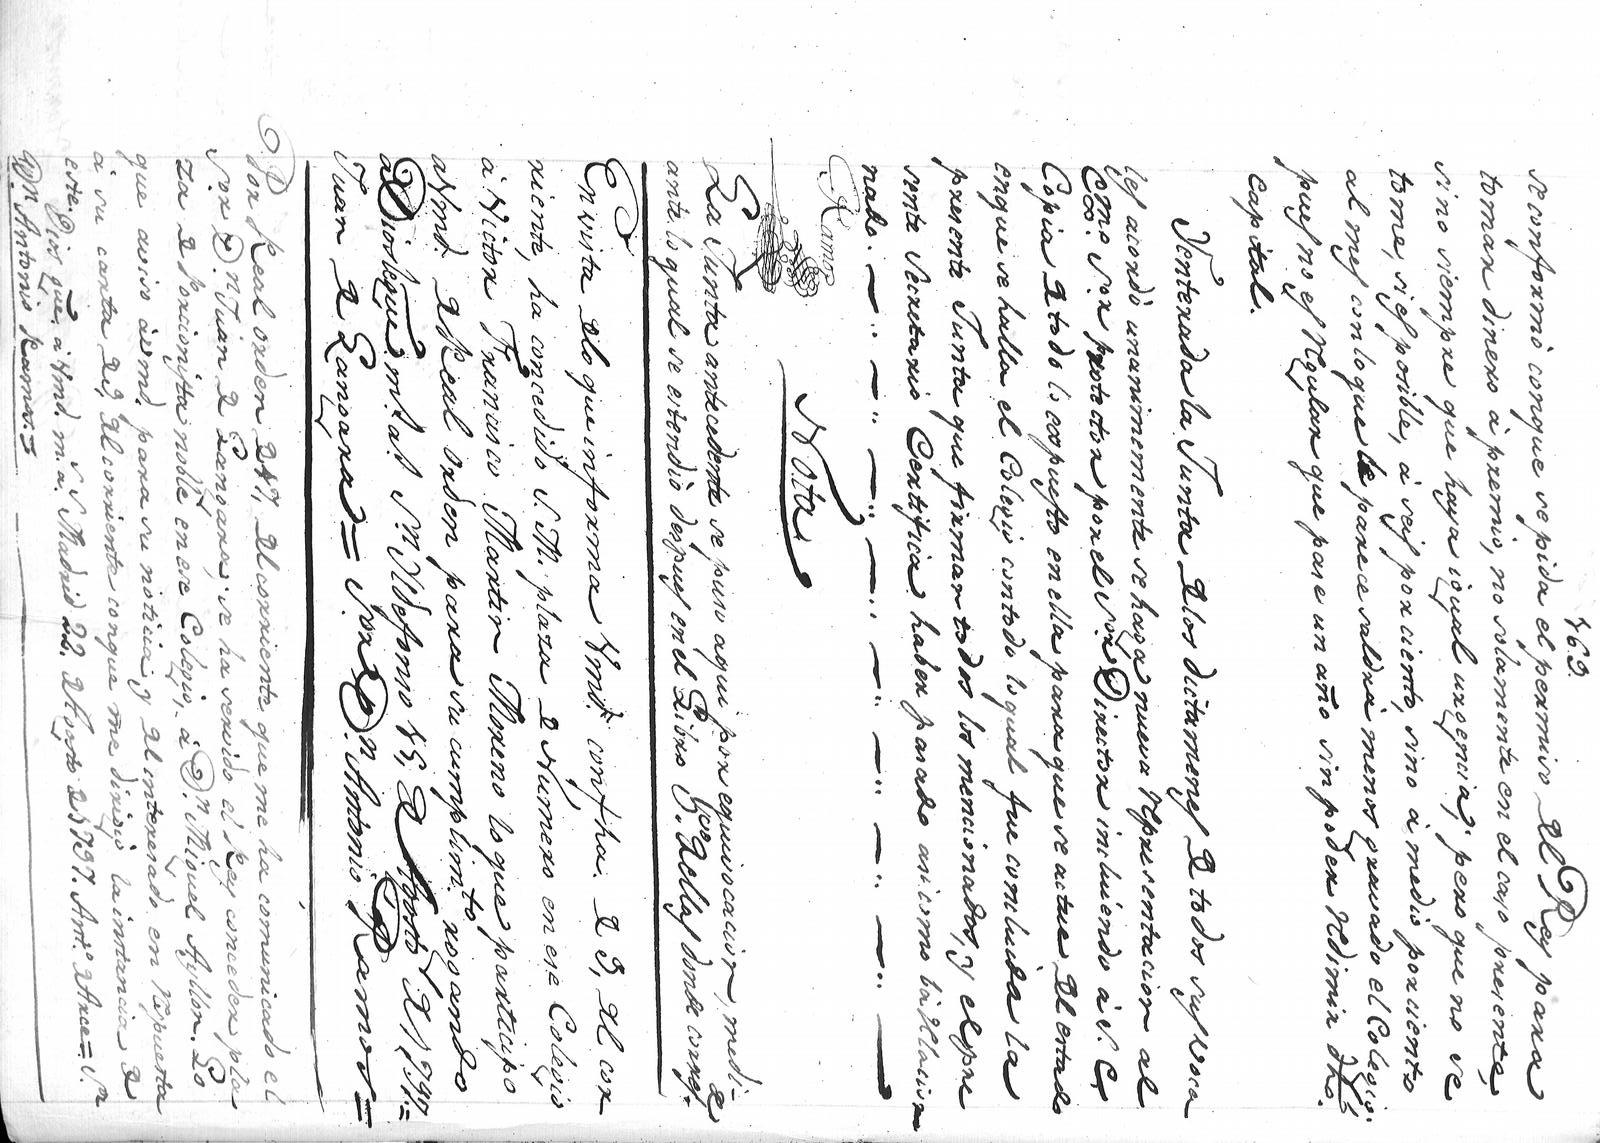 163.
se conformó con que se pida el permiso del Rey para
tomar dinero á premio, no solamente en el caso presente,
sino siempre que haya igual urgencia; pero que no se
tome, si es posible, á seis por ciento, sino á medio por ciento
al mes con lo que le parece saldrá menos gravado el Colegio:
pues no es regular que pase un año sin poder redimir dho.
capital.
Ynterada la Junta de los dictamenes de todos sus Voca
les acordó unanimemente se haga nueva representacion al
Exmo. Sor. protector por el Sor. Director incluiendo á S. E.
Copia de todo lo expuesto en ella para que se actue del estado
en que se halla el Colegio con todo lo qual fue concluida la
presente Junta que firmar todos los mencionados, y el pre
sente Secretario Certifica haber pasado asi como bá relacio
nado.
Ramos
Nota
La Junta antecedente se puso aqui por equivocacion, medi-
ante lo qual se extendió despues en el Libro de ellas donde corres-
En vista de lo que informa Vmd. con fha. de 3, del cor
riente, ha concedido S. M. plaza de Número en ese Colegio
á Victor Francisco Martin Moreno lo que participo
á Vmd. de Real orden para su cumplimto. rogando
á Dios gue. ms. as. Sn. Ildefonso 15, de Agosto de 1797.=
Juan de Lanoara = Sor. Dn. Antonio Ramos =
Por Real orden de 17, del corriente que me ha comunicado el
Sor. Dn. Juan de Lanoara, se ha servido el Rey conceder pla
za de Porcionista noble en ese Colegio, á Dn. Miguel Ayllon. Lo
que aviso á vmd. para su noticia y del interesado en respuesta
á su carta de, del corriente con que me dirigió la instancia de
este. Dios gue. á Vmd. m. a. Madrid 22, de Agosto de 1797. Ant.o de Arce = Sr.
Dn. Antonio Ramos. =